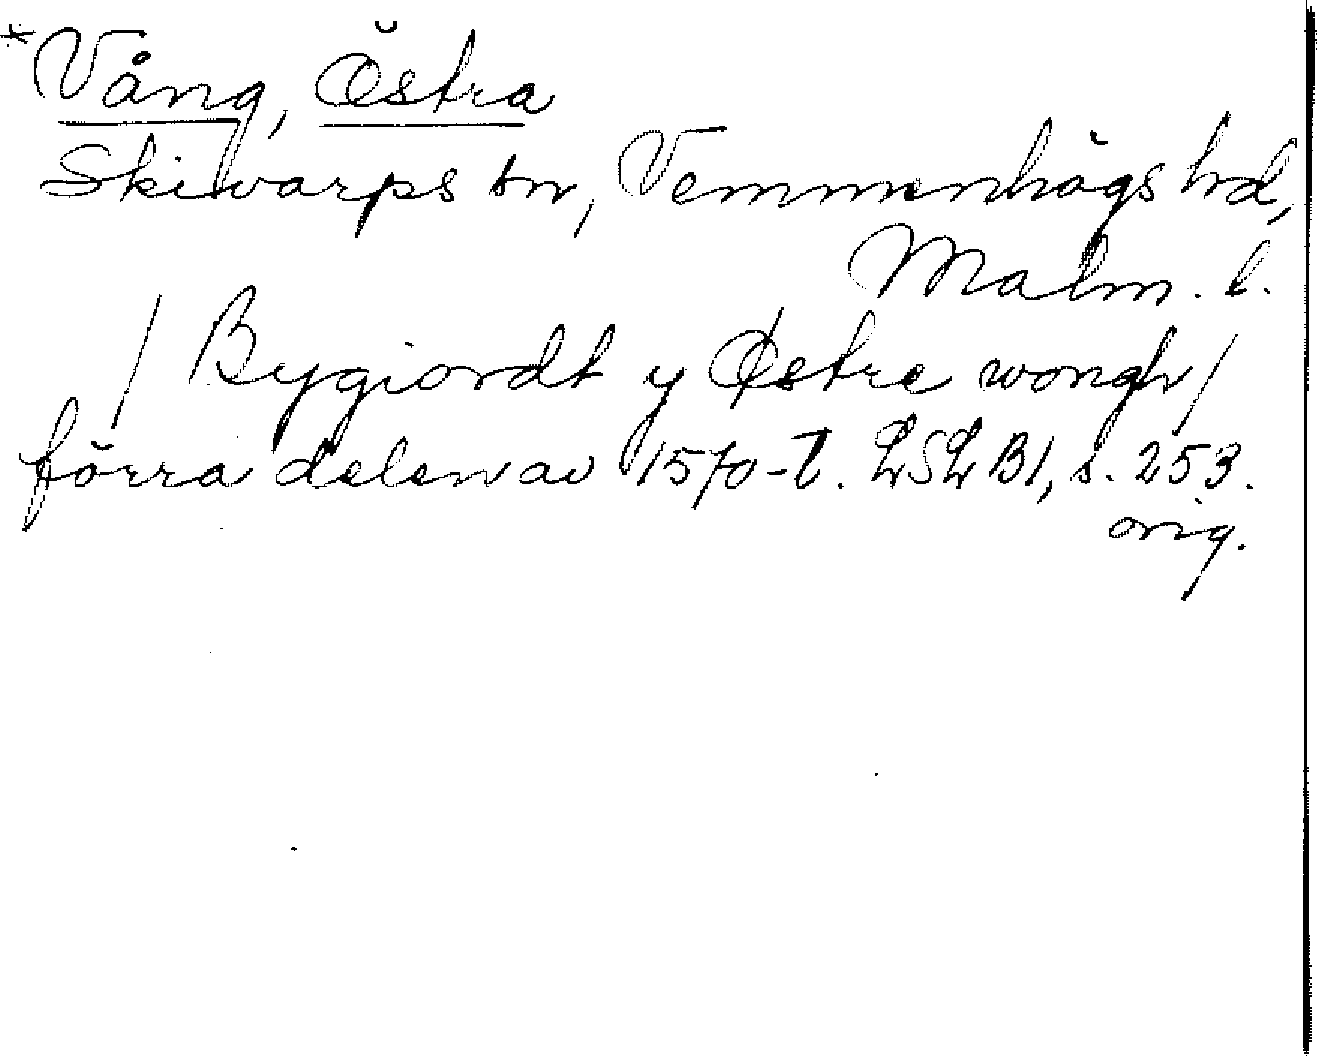 *Vång, Östra
Skivarps sn, Vemmenhögs hd,
Malm. l.
/ Bygiordt y Østre wongh /
förra delen av 1570-t. LSL B1, s. 253.
orig.